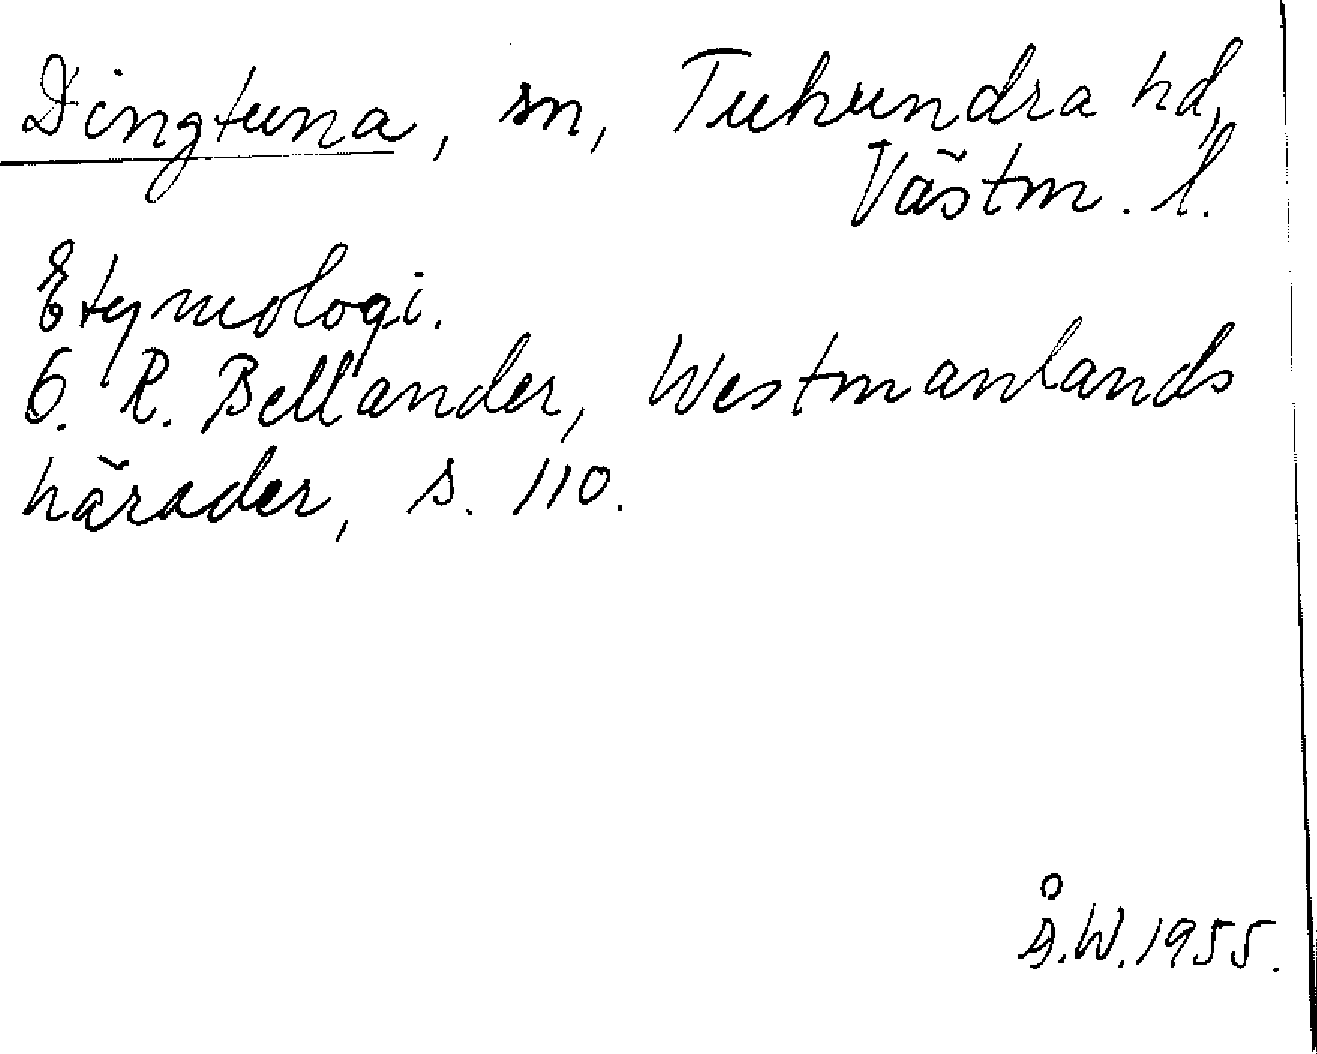 Dingtuna, sn, Tuhundra hd,
Västm. l.
Etymologi.
E. R. Bellander, Westmanlands
härader, s. 110.
Å.W. 1955.